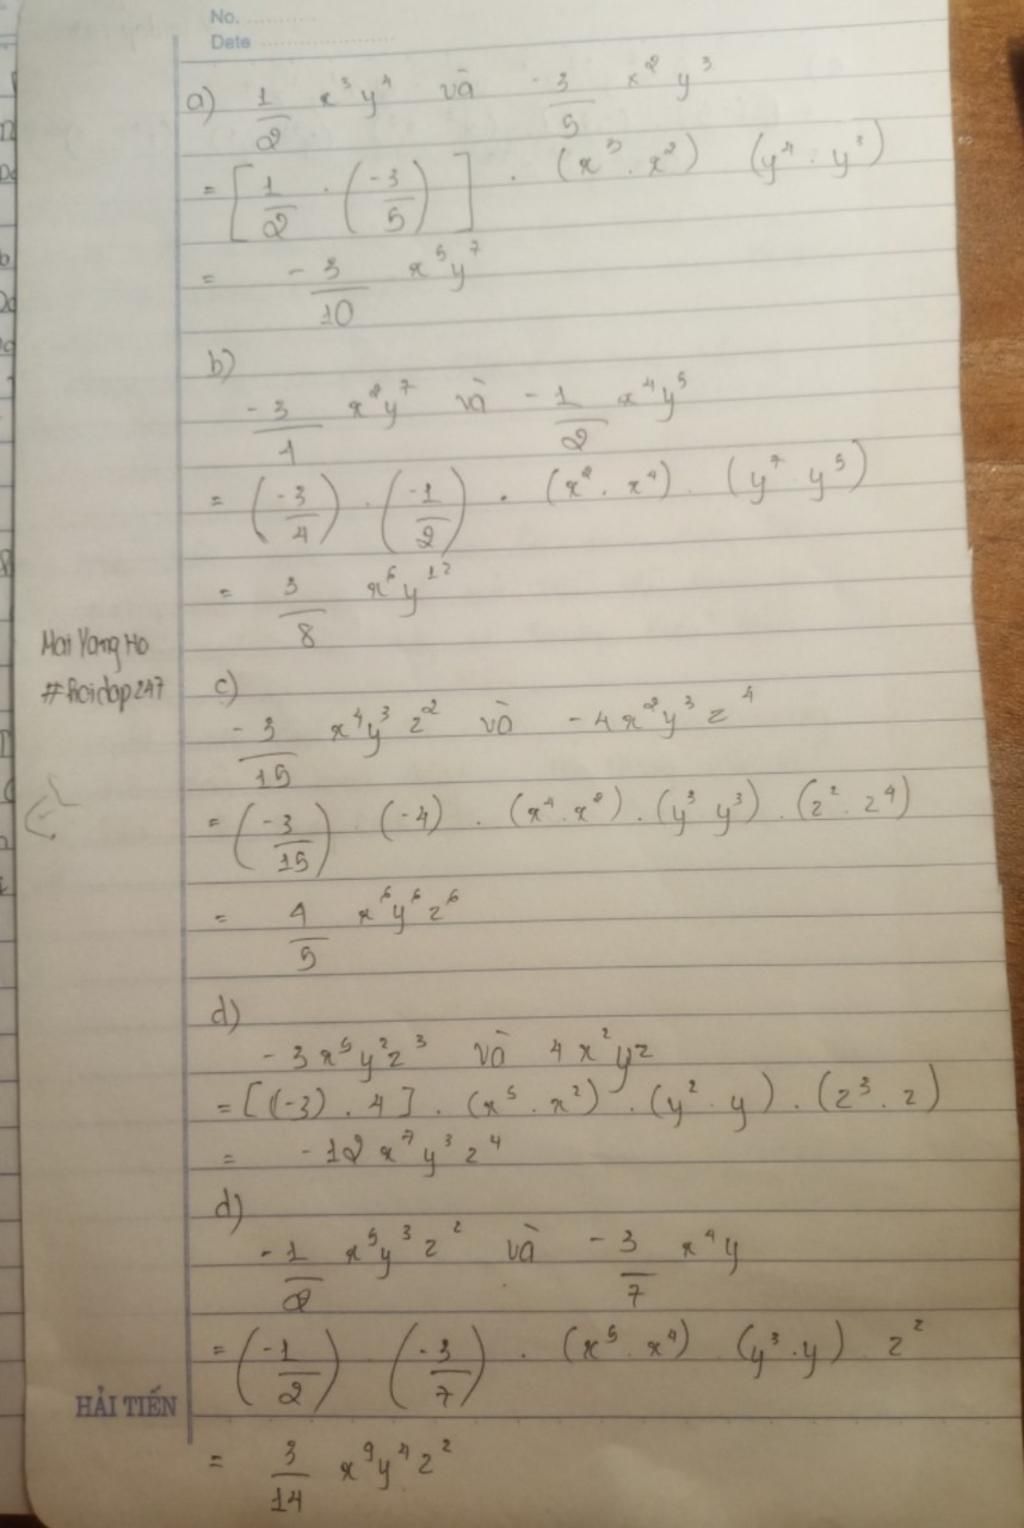 No. ............
Date ........................
a) 1/2 x³y⁴ và -3/5 x² y³
= [1/2 . (-3/5)] . (x³ . x²) (y⁴ . y³)
= -3/10 x⁵y⁷
b)
-3/4 x²y⁷ và -1/2 x⁴y⁵
= (-3/4) . (-1/2) . (x² . x⁴) . (y⁷ y⁵)
= 3/8 x⁶y¹²
c)
-3/15 x⁴y³z² và -4x²y³z⁴
= (-3/15) . (-4) . (x⁴ . x²) . (y³ y³) . (z² . z⁴)
= 4/5 x⁶y⁶z⁶
d)
-3x⁵y²z³ và 4x²yz
= [(-3) . 4] . (x⁵ . x²) . (y² . y) . (z³ . z)
= -12x⁷y³z⁴
d)
-1/2 x⁵y³z² và -3/7 x⁴y
= (-1/2) . (-3/7) . (x⁵ . x⁴) (y³ . y) z²
= 3/14 x⁹y⁴z²
#hoidap247
HẢI TIẾN